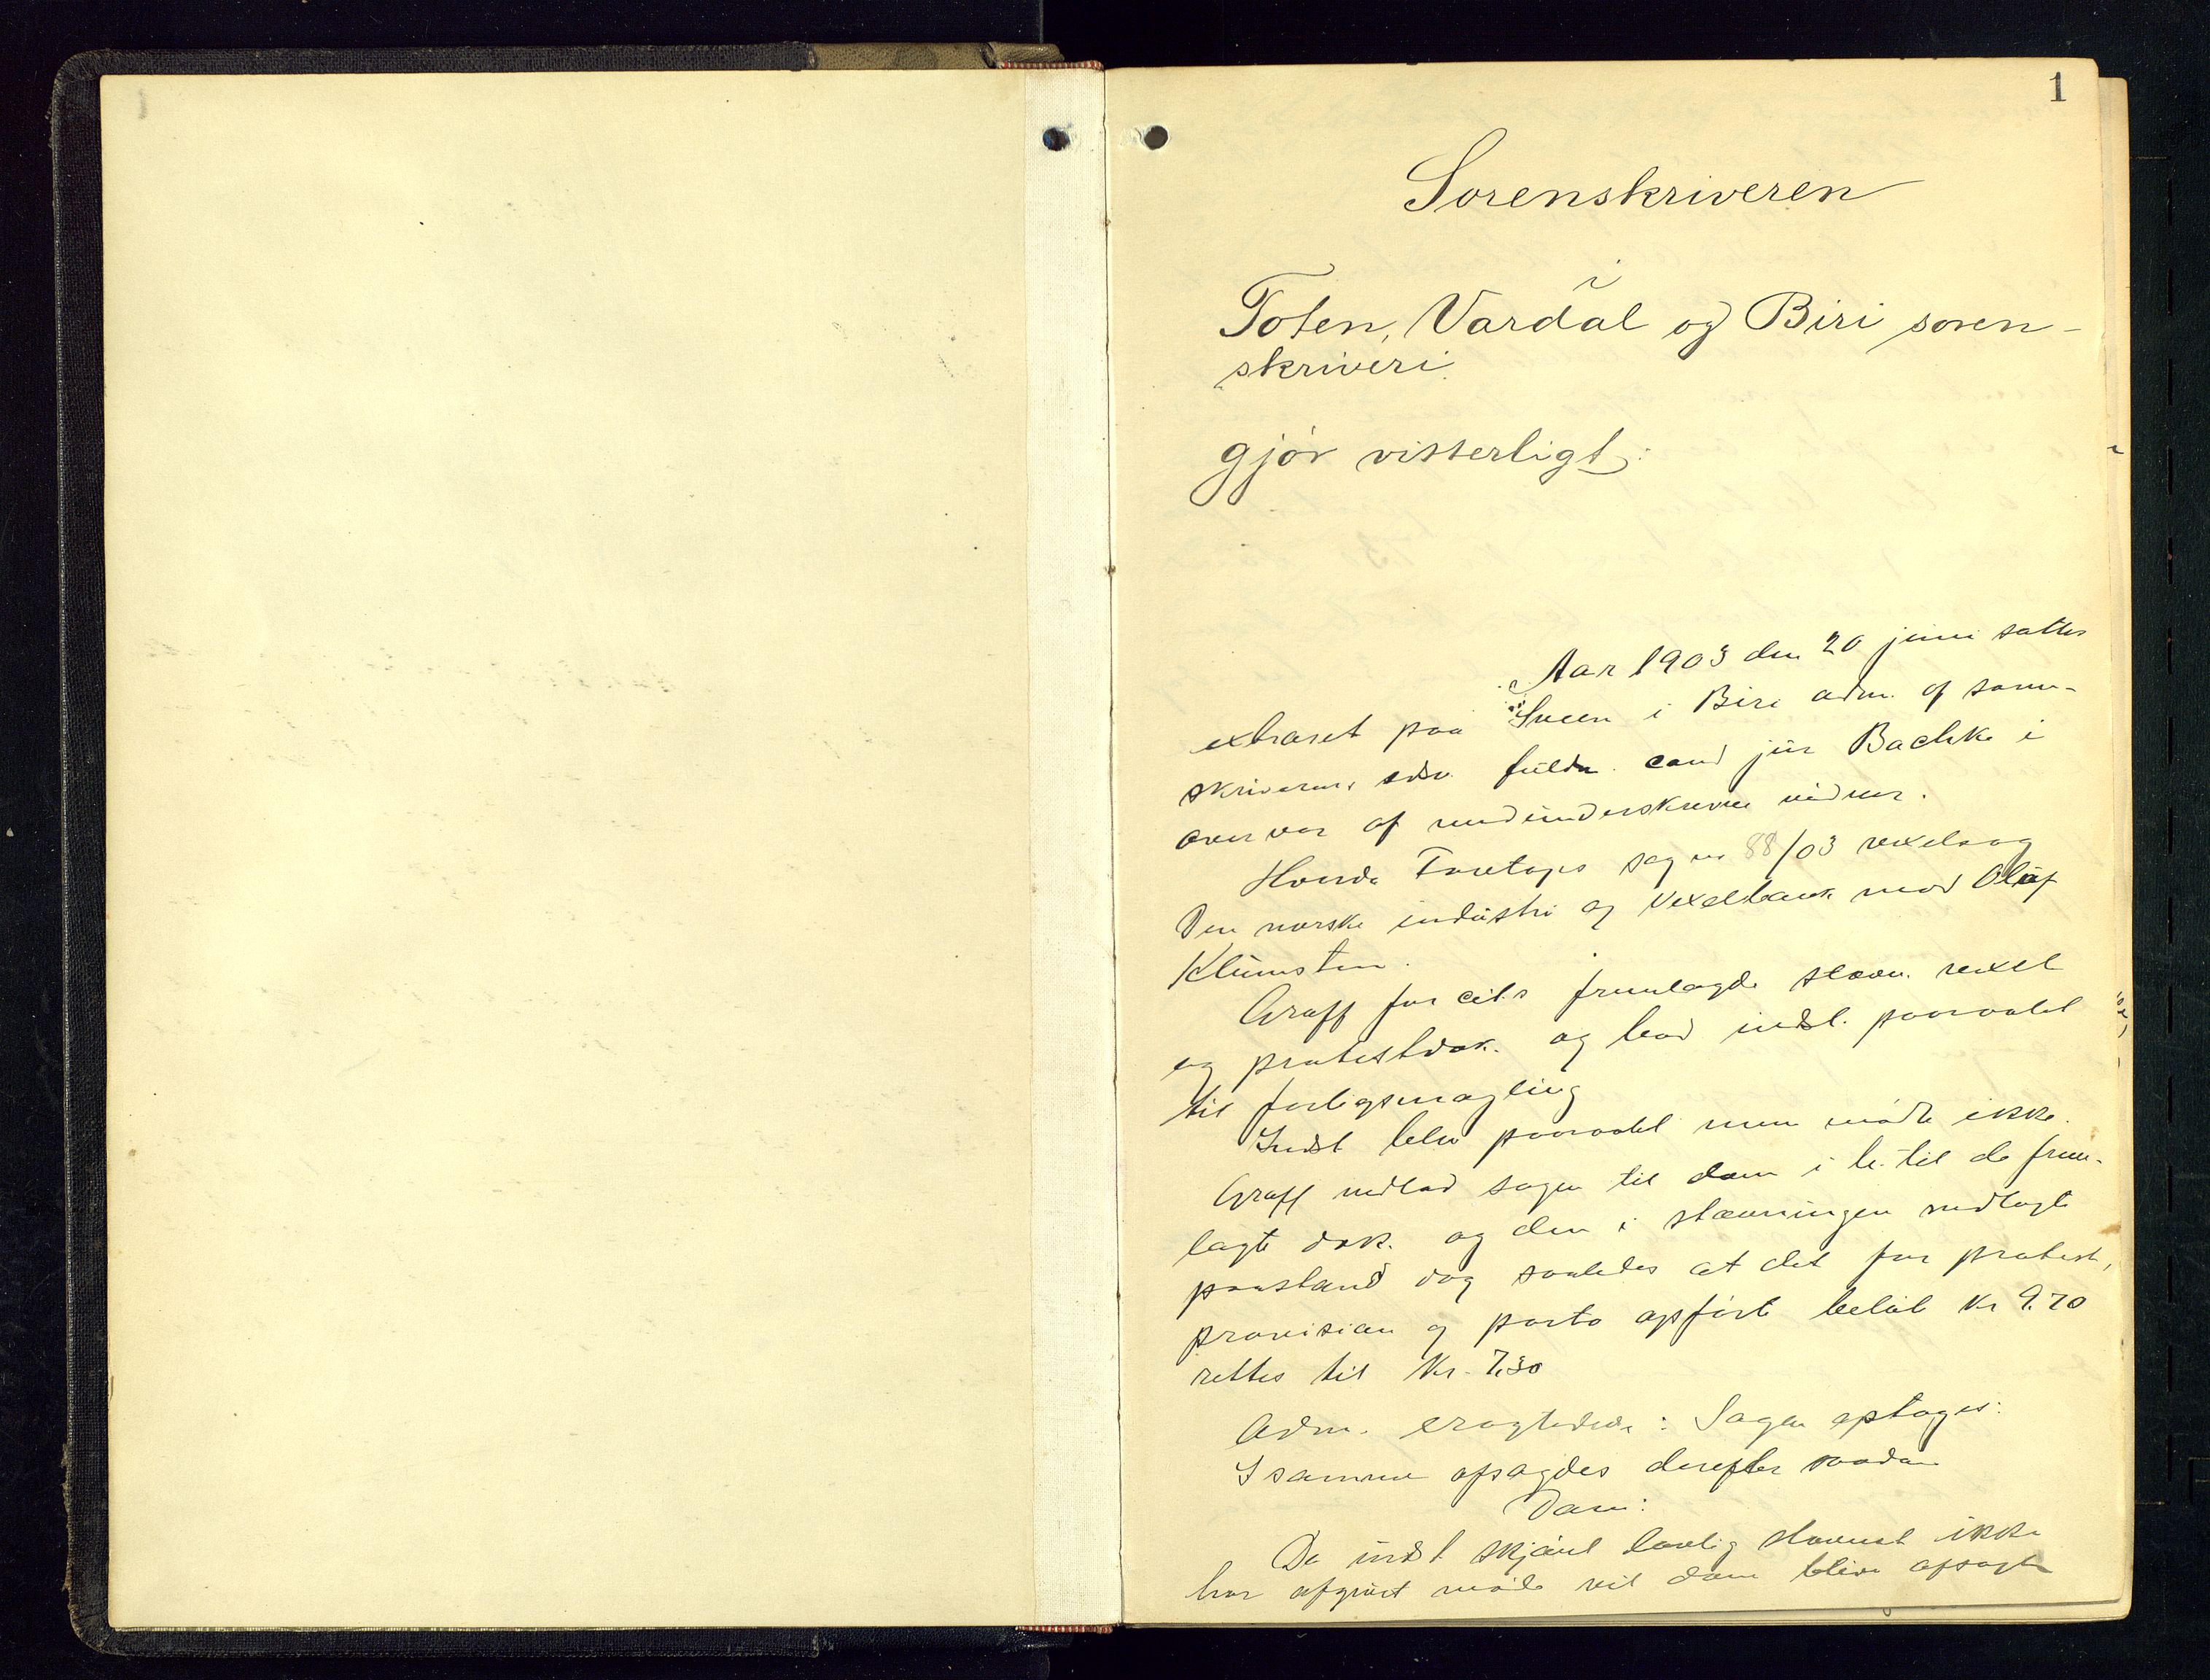 1
Sorenskriveren
i
Toten, Vardal og Biri soren-
skriveri
gjør vitterligt:
Aar 1903 den 20 juni sattes
extraret paa Sveen i Biri adm. af soren-
skriverens edsv. fuldm. cand jur Backke i
overvær af medunderskrevne vidner.
Hvorda Foretages sag no 88/03 vexelsag
Den norske industri og Vexelbank mod Oluf
Klumsten.
Graff for cit.s fremlagde stævn. vexel
og protestdok. og bad indst. paaraabt
til forligsmægling
Indst blev paaraabt men mødte ikke.
Graff indlod sagen til dom i h. til de frem-
lagte dok. og den i stævningen nedlagte
paastand dog saaledes at det for protest,
provision og porto opførte beløb Kr 9.70
rettes til Kr. 7.30
Adm. eragtede: Sagen optages:
I samme afsagdes derefter saadan
Dom:
Da indst skjønt lovlig stævnet ikke
har afgivet møde vil dom blive afsagt